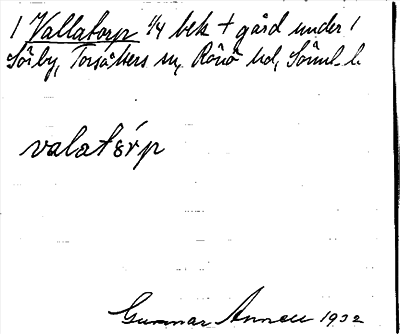 1 Vallatorp 1/4 bek + gård under 1
Sörby, Torsåkers sn, Rönö hd, Söml. l.
valatörp
Gunnar Annell 1932